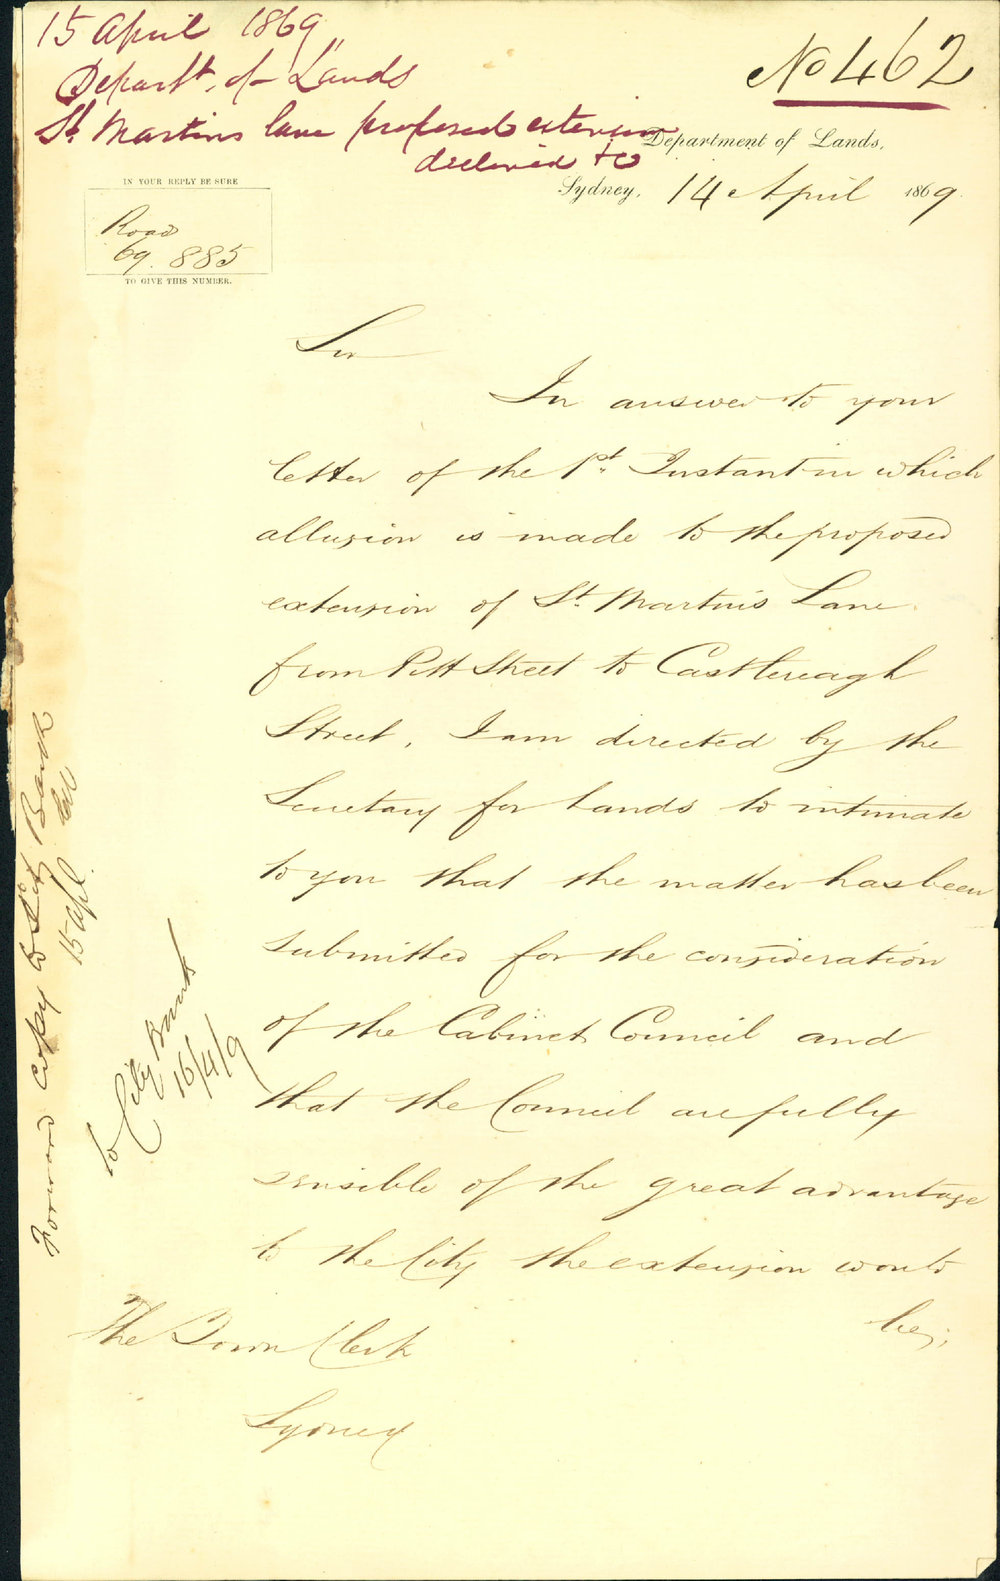 15 April 1869
Departt. of Lands
St. Martins lane proposed extension
declined &c
No 462
Department of Lands,
Sydney, 14 April 1869.
IN YOUR REPLY BE SURE
Road
69. 885
TO GIVE THIS NUMBER.
Sir
In answer to your
letter of the 1st. Instant in which
allusion is made to the proposed
extension of St. Martin's Lane
from Pitt Street to Castlereagh
Street, I am directed by the
Secretary for Lands to intimate
to you that the matter has been
submitted for the consideration
of the Cabinet Council and
that the Council are fully
sensible of the great advantage
to the City the extension would
be;
The Town Clerk
Sydney
Forward copy to City Bank
15 Apl.
To City Bank
16/4/9